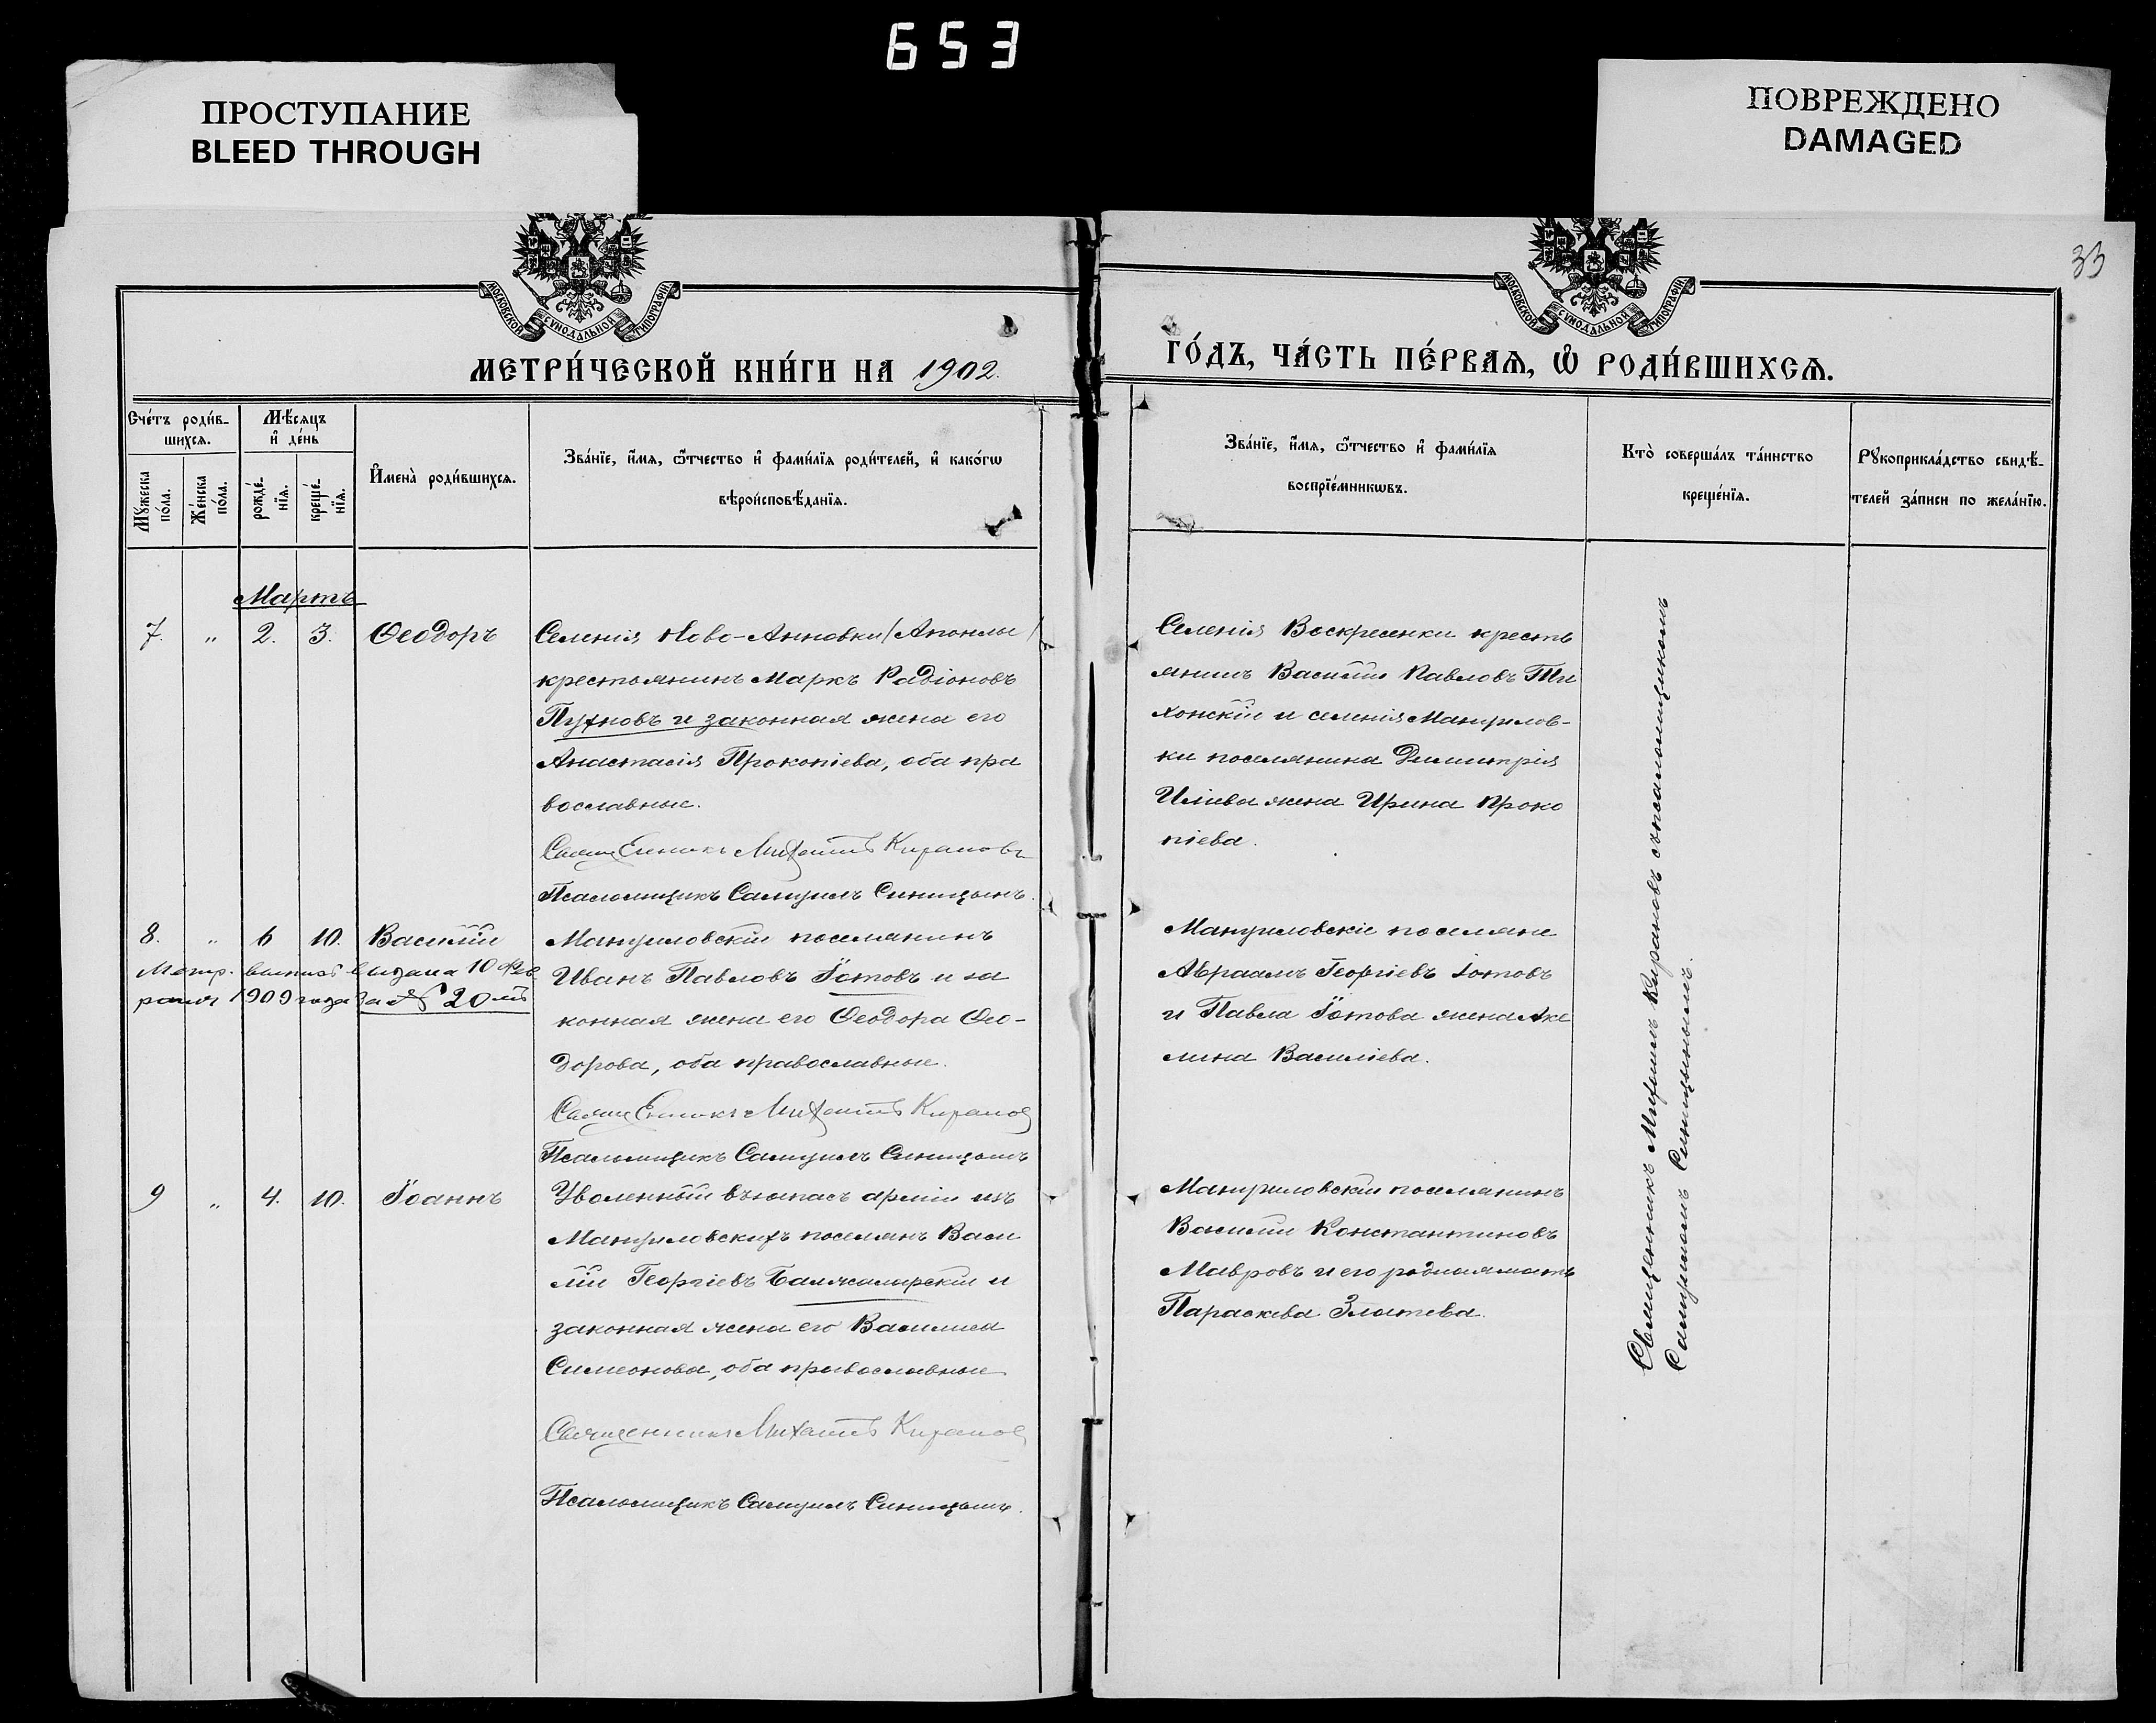 653
ПРОСТУПАНИЕ
BLEED THROUGH
ПОВРЕЖДЕНО
DAMAGED
33
МОСКОВСКОЙ СѴНОДАЛЬНОЙ ТИПОГРАФІИ
МОСКОВСКОЙ СѴНОДАЛЬНОЙ ТИПОГРАФІИ
МЕТРИ́ЧЕСКОЙ КНИ́ГИ НА 1902.
ГО́ДЪ, ЧА́СТЬ ПЕ́РВАѦ, Ѽ РОДИ́ВШИХСѦ.
Сче́тъ роди́в-
шихсѧ.
Мѣ́сѧцъ
и҆ де́нь
Мꙋ́жеска
по́ла.
Же́нска
по́ла.
рожде́-
нїѧ.
креще́-
нїѧ.
И҆мена̀ роди́вшихсѧ.
Зва́нїе, и҆́мѧ, ѻ҆́тчество и҆ фами́лїѧ роди́телей, и҆ како́гѡ
вѣроисповѣ́данїѧ.
Зва́нїе, и҆́мѧ, ѻ҆́тчество и҆ фами́лїѧ
воспрїе́мникѡвъ.
Кто̀ соверша́лъ та́инство
креще́нїѧ.
Рꙋкоприкла́дство свидѣ́-
телей за́писи по жела́нїю.
Мартъ
7. " 2. 3. Ѳеодоръ
Селенія Ново-Анновки /Апонлы/
крестьянинъ Маркъ Радіоновъ
Пухновъ и законная жена его
Анастасія Прокопіева, оба пра
вославные.
Священникъ Михаилъ Кирановъ
Псаломщикъ Самуилъ Синицынъ.
Селенія Воскресенки кресть
янинъ Василій Павловъ Ти
хонскій и селенія Мануилов-
ки поселянина Димитрія
Иліева жена Ирина Проко
піева.
8. " 6 10. Василій
Метр. выпись выдана 10 Фев
раля 1909 года за № 20 мъ
Мануиловскій поселянинъ
Иванъ Павловъ Іотовъ и за
конная жена его Ѳеодора Ѳео-
дорова, оба православные.
Священникъ Михаилъ Киранов
Псаломщикъ Самуилъ Синицынъ
Мануиловскіе поселяне
Авраамъ Георгіевъ Іотовъ
и Павла Іотова жена Аке
лина Василіева.
9 " 4. 10. Іоаннъ
Уволенный въ запасъ арміи изъ
Мануиловскихъ поселянъ Васи
лій Георгіевъ Балжаларскій и
законная жена его Василиса
Симеонова, оба православные
Священникъ Михаилъ Киранов
Псаломщикъ Самуилъ Синицынъ.
Мануиловскій поселянинъ
Василій Константиновъ
Мавровъ и его родная мать
Параскева Златева.
Священникъ Михаилъ Кирановъ съ псаломщикомъ
Самуиломъ Синицынымъ.